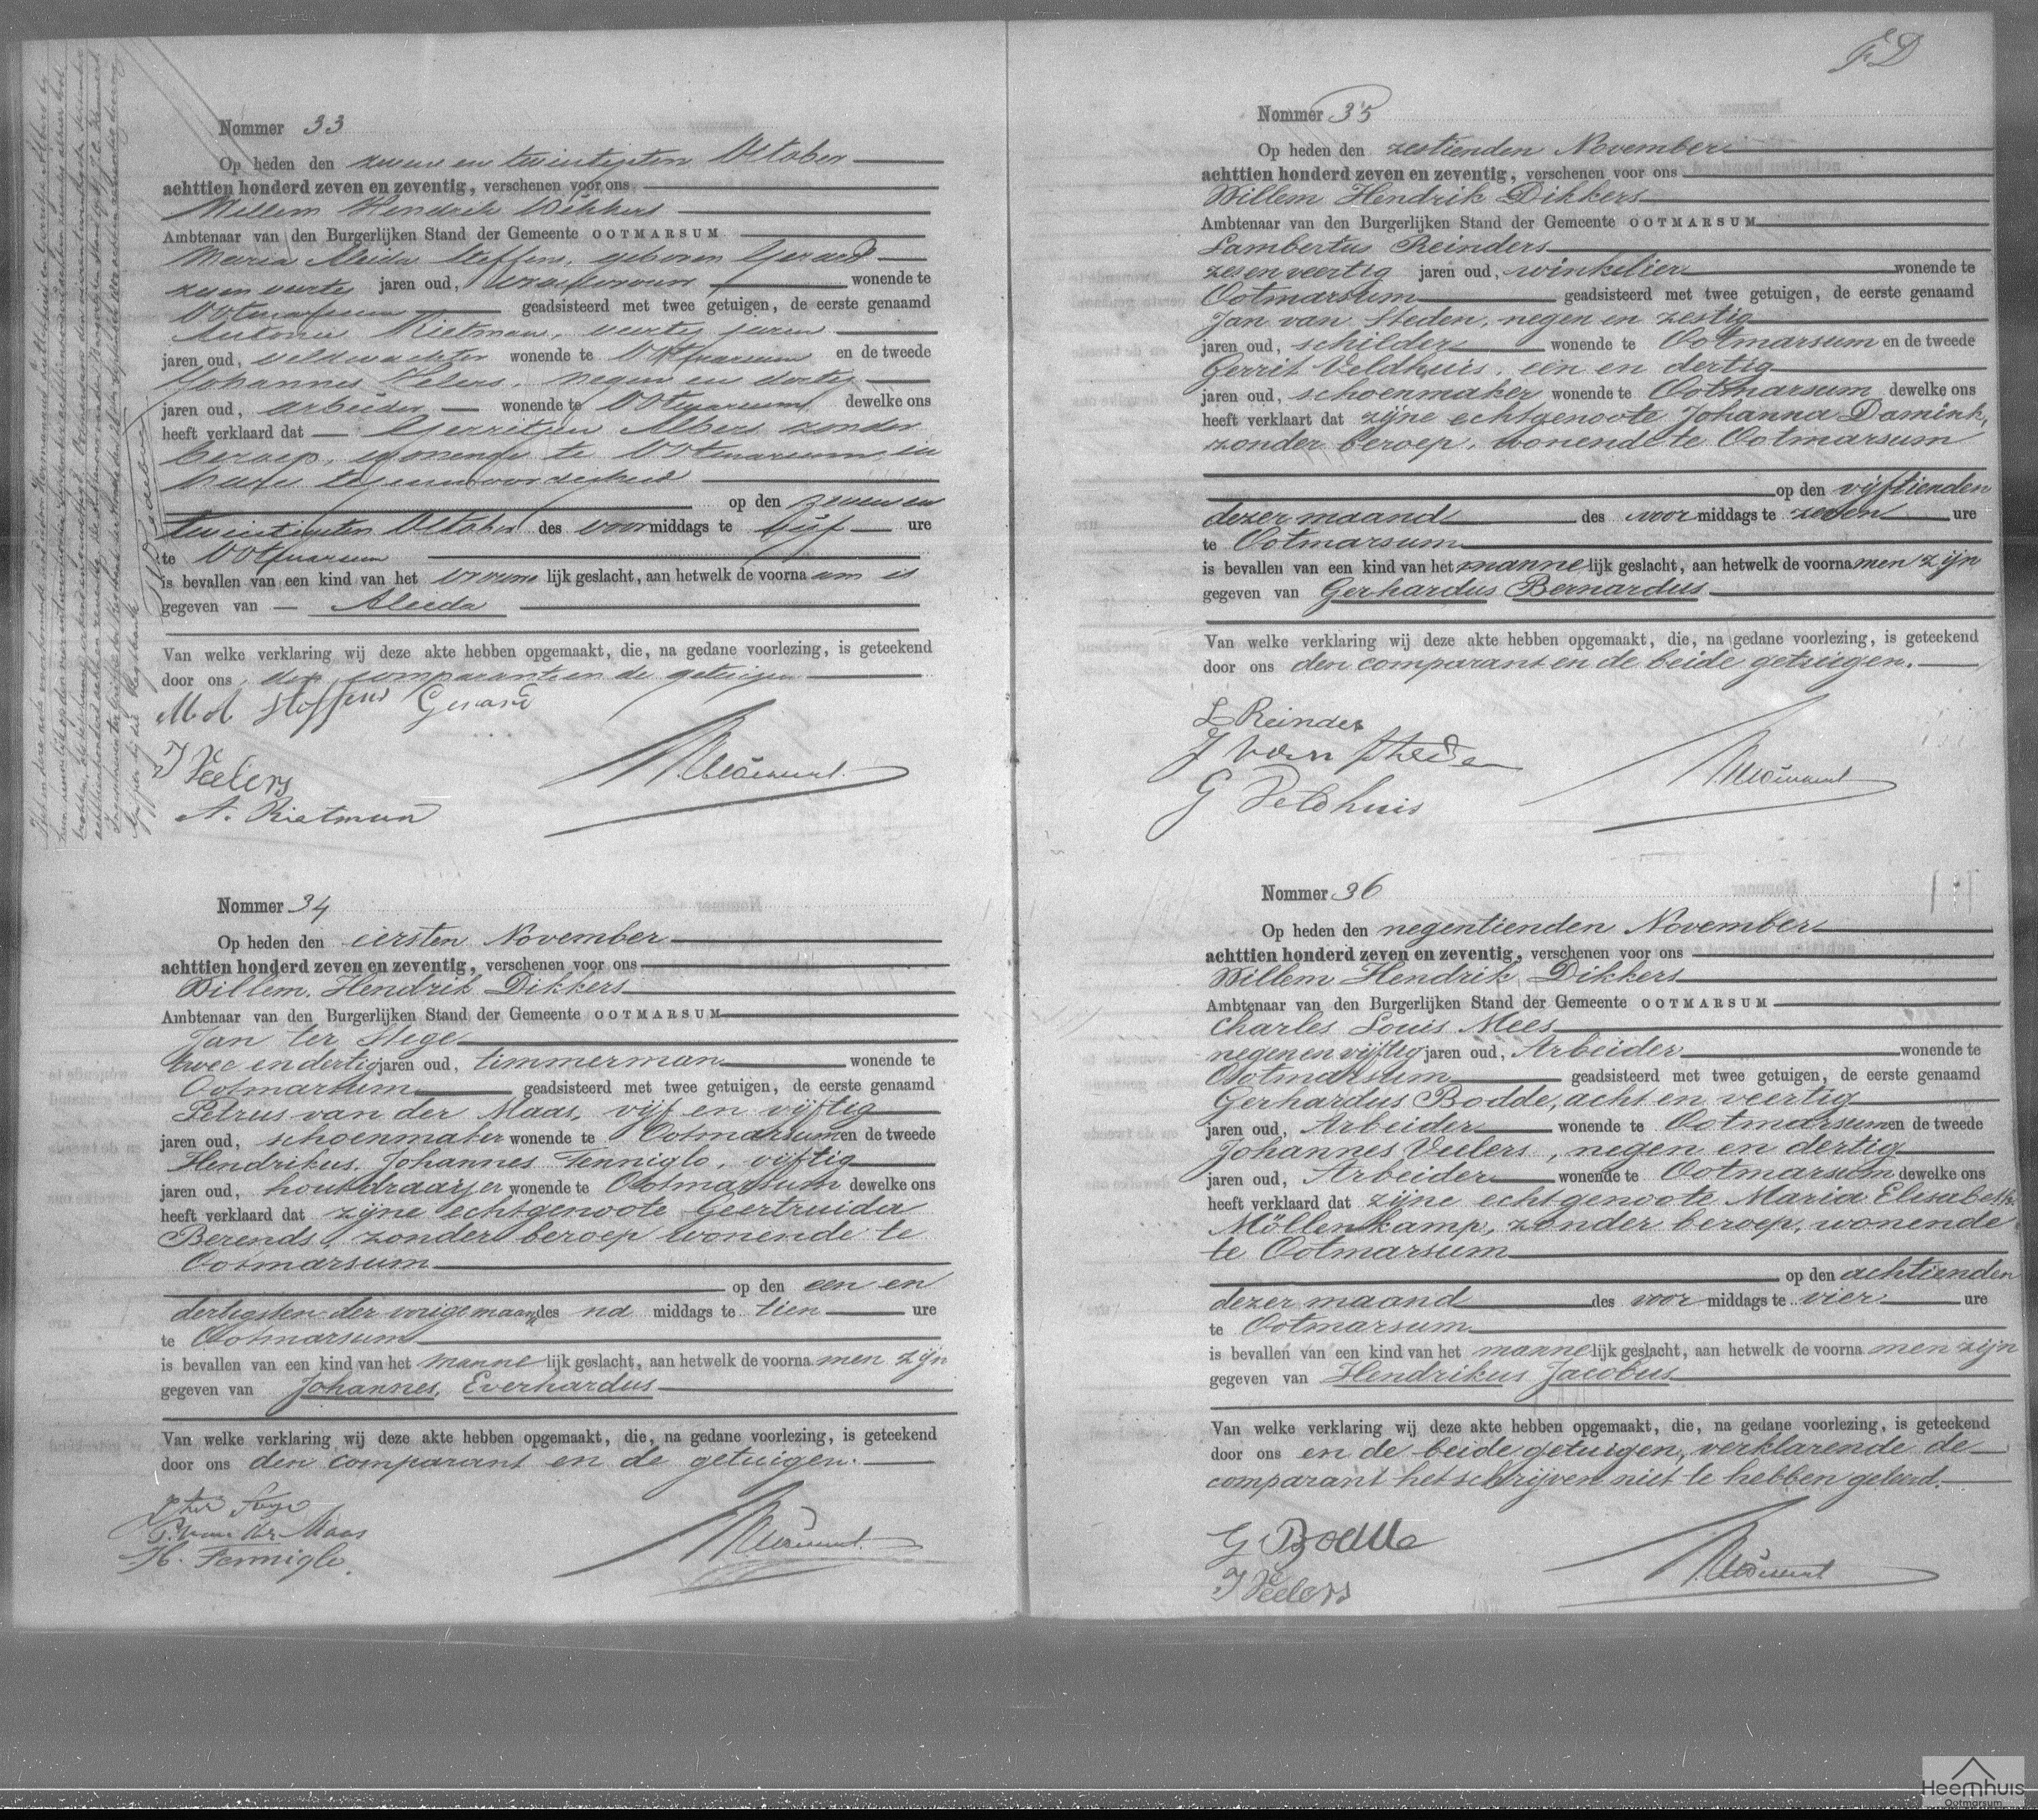 Nommer 33
Op heden den zeven en twintigsten October
achttien honderd zeven en zeventig, verschenen voor ons
Willem Hendrik Dikkers
Ambtenaar van den Burgerlijken Stand der Gemeente OOTMARSUM
Maria Aleida Steffens, geboren Gerard
jaren oud, vroedvrouw wonende te
Ootmarsum geadsisteerd met twee getuigen, de eerste genaamd
Antonie Rietman, veertig jaren
jaren oud, veldwachter wonende te Ootmarsum en de tweede
Johannes Velers, negen en dertig
jaren oud, arbeider wonende te Ootmarsum dewelke ons
heeft verklaard dat Gerritjen Albers zonder
beroep, wonende te Ootmarsum, in
hare tegenwoordigheid
op den zeven en
twintigsten October des voormiddags te vijf ure
te Ootmarsum
is bevallen van een kind van het vrouwelijk geslacht, aan hetwelk de voornaam is
gegeven van Aleida
Van welke verklaring wij deze akte hebben opgemaakt, die, na gedane voorlezing, is geteekend
door ons, de comparante en de getuigen
M A Steffens Gerard
J Veelers
A. Rietman
Nommer 34
Op heden den eersten November
achttien honderd zeven en zeventig, verschenen voor ons
Willem Hendrik Dikkers
Ambtenaar van den Burgerlijken Stand der Gemeente OOTMARSUM
Jan ter Stege
twee en dertig jaren oud, timmerman wonende te
Ootmarsum geadsisteerd met twee getuigen, de eerste genaamd
Petrus van der Maas, vijf en vijftig
jaren oud, schoenmaker wonende te Ootmarsum en de tweede
Hendrikus Johannes Fenniglo, vijftig
jaren oud, houtdraaijer wonende te Ootmarsum dewelke ons
heeft verklaard dat zijne echtgenoote Geertruida
Berends, zonder beroep wonende te
Ootmarsum
op den een en
dertigsten der vorige maand des na middags te tien ure
te Ootmarsum
is bevallen van een kind van het mannelijk geslacht, aan hetwelk de voornamen zijn
gegeven van Johannes, Everhardus
Van welke verklaring wij deze akte hebben opgemaakt, die, na gedane voorlezing, is geteekend
door ons den comparant en de getuigen.
J ter Stege
P. van der Maas
H. Fennigle.
Nommer 35
Op heden den zestienden November
achttien honderd zeven en zeventig, verschenen voor ons
Willem Hendrik Dikkers
Ambtenaar van den Burgerlijken Stand der Gemeente OOTMARSUM
Lambertus Reinders
zes en veertig jaren oud, winkelier wonende te
Ootmarsum geadsisteerd met twee getuigen, de eerste genaamd
Jan van Steden, negen en zestig
jaren oud, schilder wonende te Ootmarsum en de tweede
Gerrit Veldhuis, een en dertig
jaren oud, schoenmaker wonende te Ootmarsum dewelke ons
heeft verklaart dat zijne echtgenoote Johanna Damink,
zonder beroep, wonende te Ootmarsum
op den vijftienden
dezer maand des voor middags te zeven ure
te Ootmarsum
is bevallen van een kind van het mannelijk geslacht, aan hetwelk de voornamen zijn
gegeven van Gerhardus Bernardus
Van welke verklaring wij deze akte hebben opgemaakt, die, na gedane voorlezing, is geteekend
door ons den comparant en de beide getuigen.
L Reinders
J van Steden
G Veldhuis
Nommer 36
Op heden den negentienden November
achttien honderd zeven en zeventig, verschenen voor ons
Willem Hendrik Dikkers
Ambtenaar van den Burgerlijken Stand der Gemeente OOTMARSUM
Charles Louis Mees
negen en vijftig jaren oud, Arbeider wonende te
Ootmarsum geadsisteerd met twee getuigen, de eerste genaamd
Gerhardus Bodde, acht en veertig
jaren oud, Arbeider wonende te Ootmarsum en de tweede
Johannes Veelers, negen en dertig
jaren oud, Arbeider wonende te Ootmarsum dewelke ons
heeft verklaard dat zijne echtgenoote Maria Elisabeth
Möllenkamp, zonder beroep, wonende
te Ootmarsum
op den achtienden
dezer maand des voor middags te vier ure
te Ootmarsum
is bevallen van een kind van het mannelijk geslacht, aan hetwelk de voornamen zijn
gegeven van Hendrikus Jacobus
Van welke verklaring wij deze akte hebben opgemaakt, die, na gedane voorlezing, is geteekend
door ons en de beide getuigen, verklarende de
comparant het schrijven niet te hebben geleerd.
G Bodde
J Veelers
Heemhuis
Ootmarsum